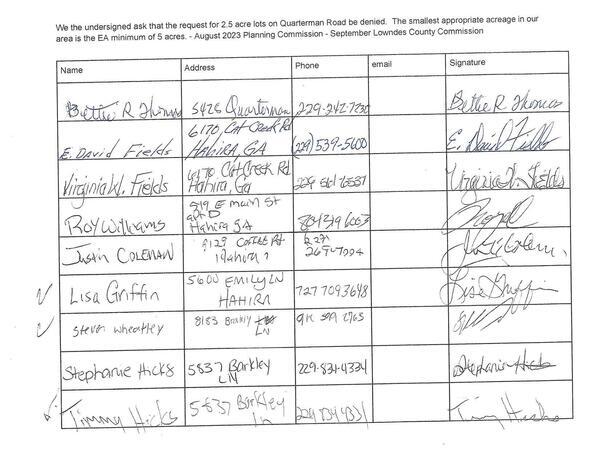 We the undersigned ask that the request for 2.5 acre lots on Quarterman Road be denied. The smallest appropriate acreage in our
area is the EA minimum of 5 acres. - August 2023 Planning Commission - September Lowndes County Commission
Name Address Phone email Signature
Bettie R Thomas 5426 Quarterman 229-242-7230 Bettie R Thomas
E. David Fields 6170 Cat Creek Rd (229) 539-5600 E. David Fields
Hahira, GA
Virginia W. Fields 6170 Cat Creek Rd Virginia W. Fields
Hahira, Ga
Roy Williams E main St
Hahira GA
Justin Coleman
Lisa Griffin 5600 Emily LN 727 7093648 Lisa Griffin
Hahira
Steven Wheatley 8183 Barkley
LN
Stephanie Hicks 5837 Barkley 229-834-4334 Stephanie Hicks
LN
Timmy Hicks 5837 Barkley
Ln